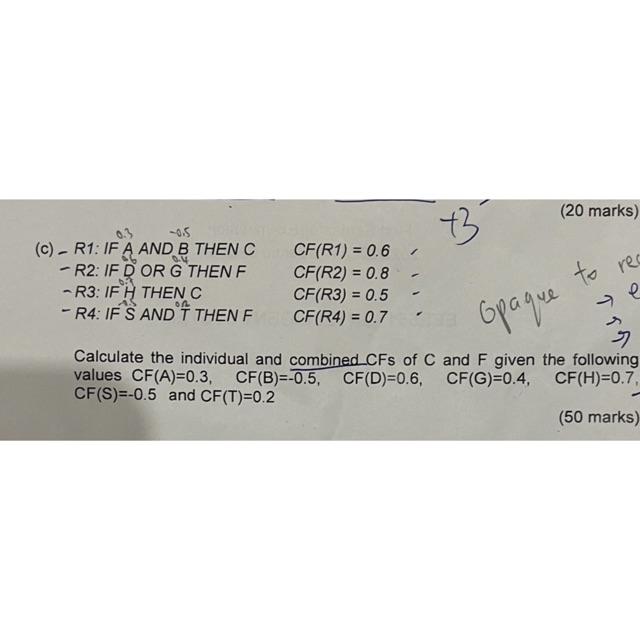 (20 marks)
+3
0.3 -0.5
(c) - R1: IF A AND B THEN C CF(R1) = 0.6
0.6 0.4
- R2: IF D OR G THEN F CF(R2) = 0.8
0.7
- R3: IF H THEN C CF(R3) = 0.5
0.2
- R4: IF S AND T THEN F CF(R4) = 0.7
Opaque to
Calculate the individual and combined CFs of C and F given the following
values CF(A)=0.3, CF(B)=-0.5, CF(D)=0.6, CF(G)=0.4, CF(H)=0.7,
CF(S)=-0.5 and CF(T)=0.2
(50 marks)